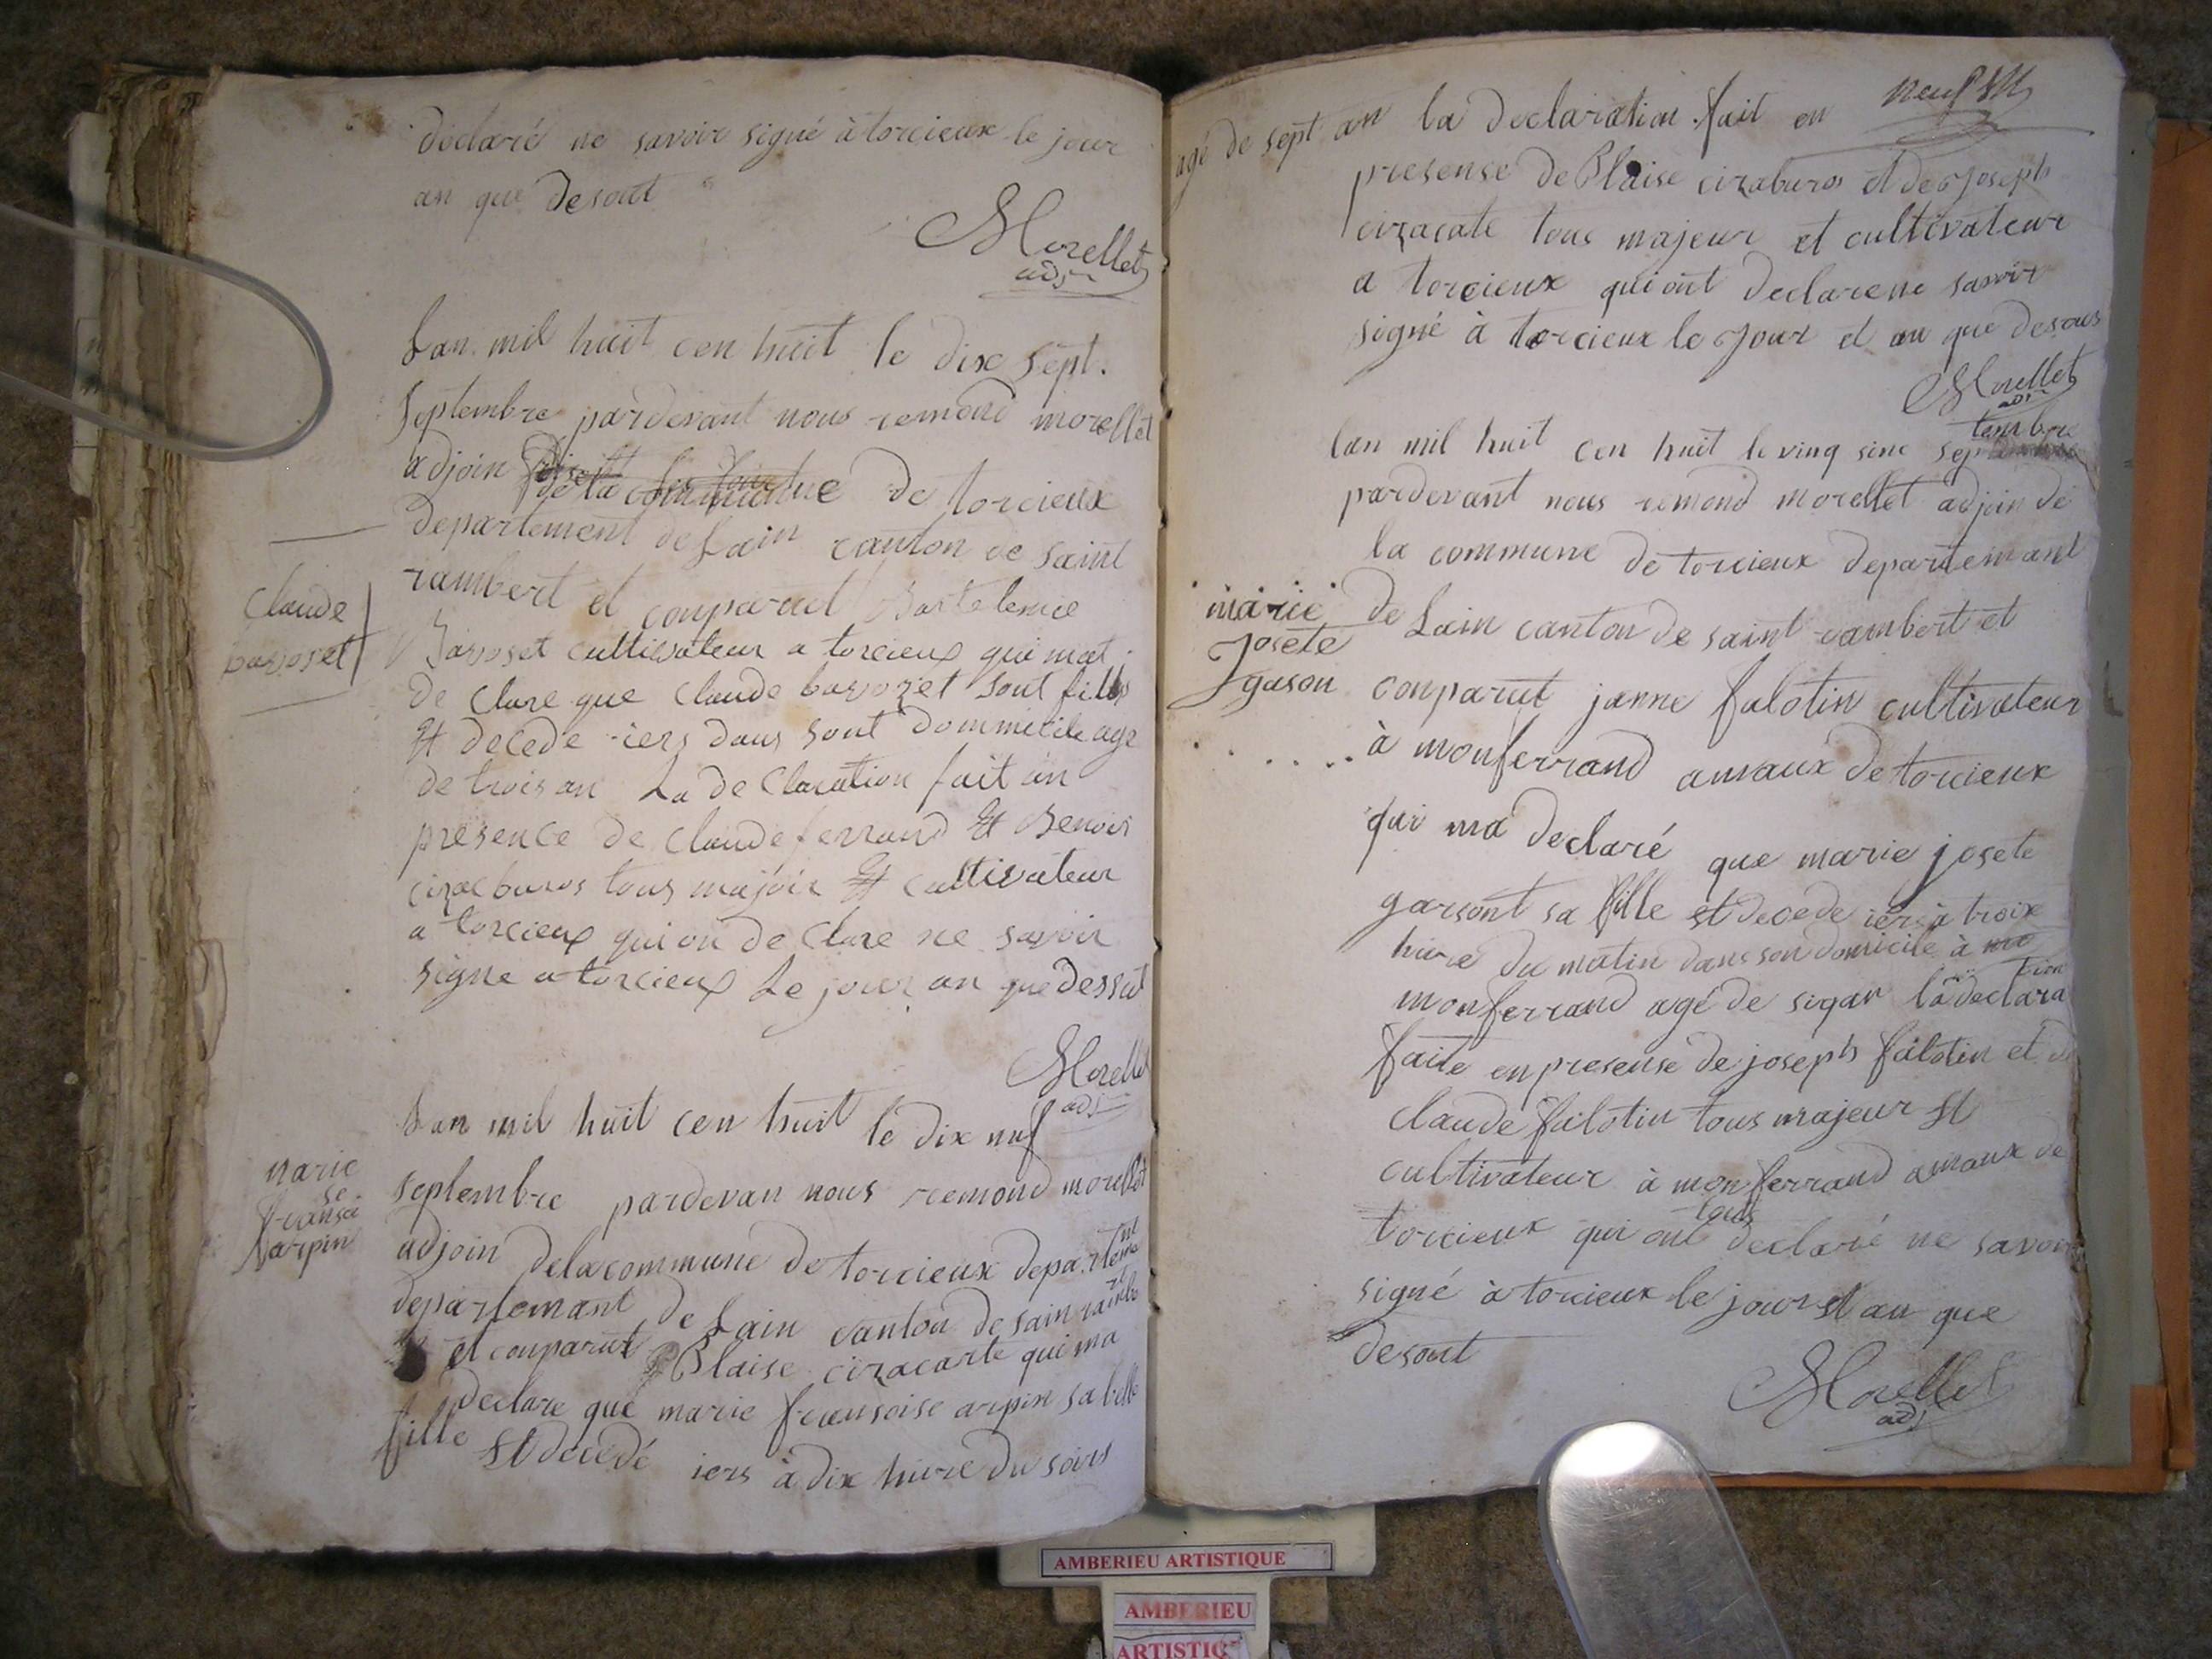 déclaré ne savoir signé à torcieux le jour
an que desout
Morellet
adj
Lan mil huit cen huit le dix sept.
septembre pardevant nous remond morellet
adjoin de la commune de torcieux
departement de Lain canton de saint
rambert et conparut Bartelemie
Claude
bavozet
Bavoset cultivateur a torcieux qui mat
de Clare que Claude bavozet sont fills
Et decede iers dans sont dommicile age
de trois an La de Claration fait an
presence de Claude ferrand Et Benoit
ciracburos tous majoir Et cultivateur
a torcieux qui on de Clare ne savoir
signe a torcieux Le jour an que dessut
Morellet
adj
Lan mil huit cen huit le dix nuf
marie
fransoi
se
arpin
septembre pardevan nous remond morellet
adjoin delacommune de torcieux departement
departemant de Lain canton de sain rambert
et conparut Blaise cizacarte qui ma
declare que marie fransoise arpin sa belle
fille et decedé iers à dix huire du soirs
neuf
agé de sept an la declaration fait en
presense de Blaise cizaburos et de Joseph
cizacate tous majeur et cultivateur
a torcieux qui ont declare ne savoir
signé à torcieux le Jour et an que desous
Morellet
adj
lan mil huit cen huit le ving sinc septembre
pardevant nous remond morellet adjoin de
la commune de torcieux departemant
marie
Josete
gason
de Lain canton de saint rambert et
conparut janne falotin cultivateur
à monferrand amaux de torcieux
qui ma declaré que marie josete
garsont sa fille et decede iers à troix
huire du matin dans son domicile à
monferrand agé de sigan la declaration
faite en presense de joseph falotin et de
claude falotin tous majeur et
cultivateur à monferrand amaux de
torcieux qui ont tous declaré ne savoir
signé à torcieux le jour et an que
desout
Morellet
adj
AMBERIEU ARTISTIQUE
AMBERIEU
ARTISTIQ